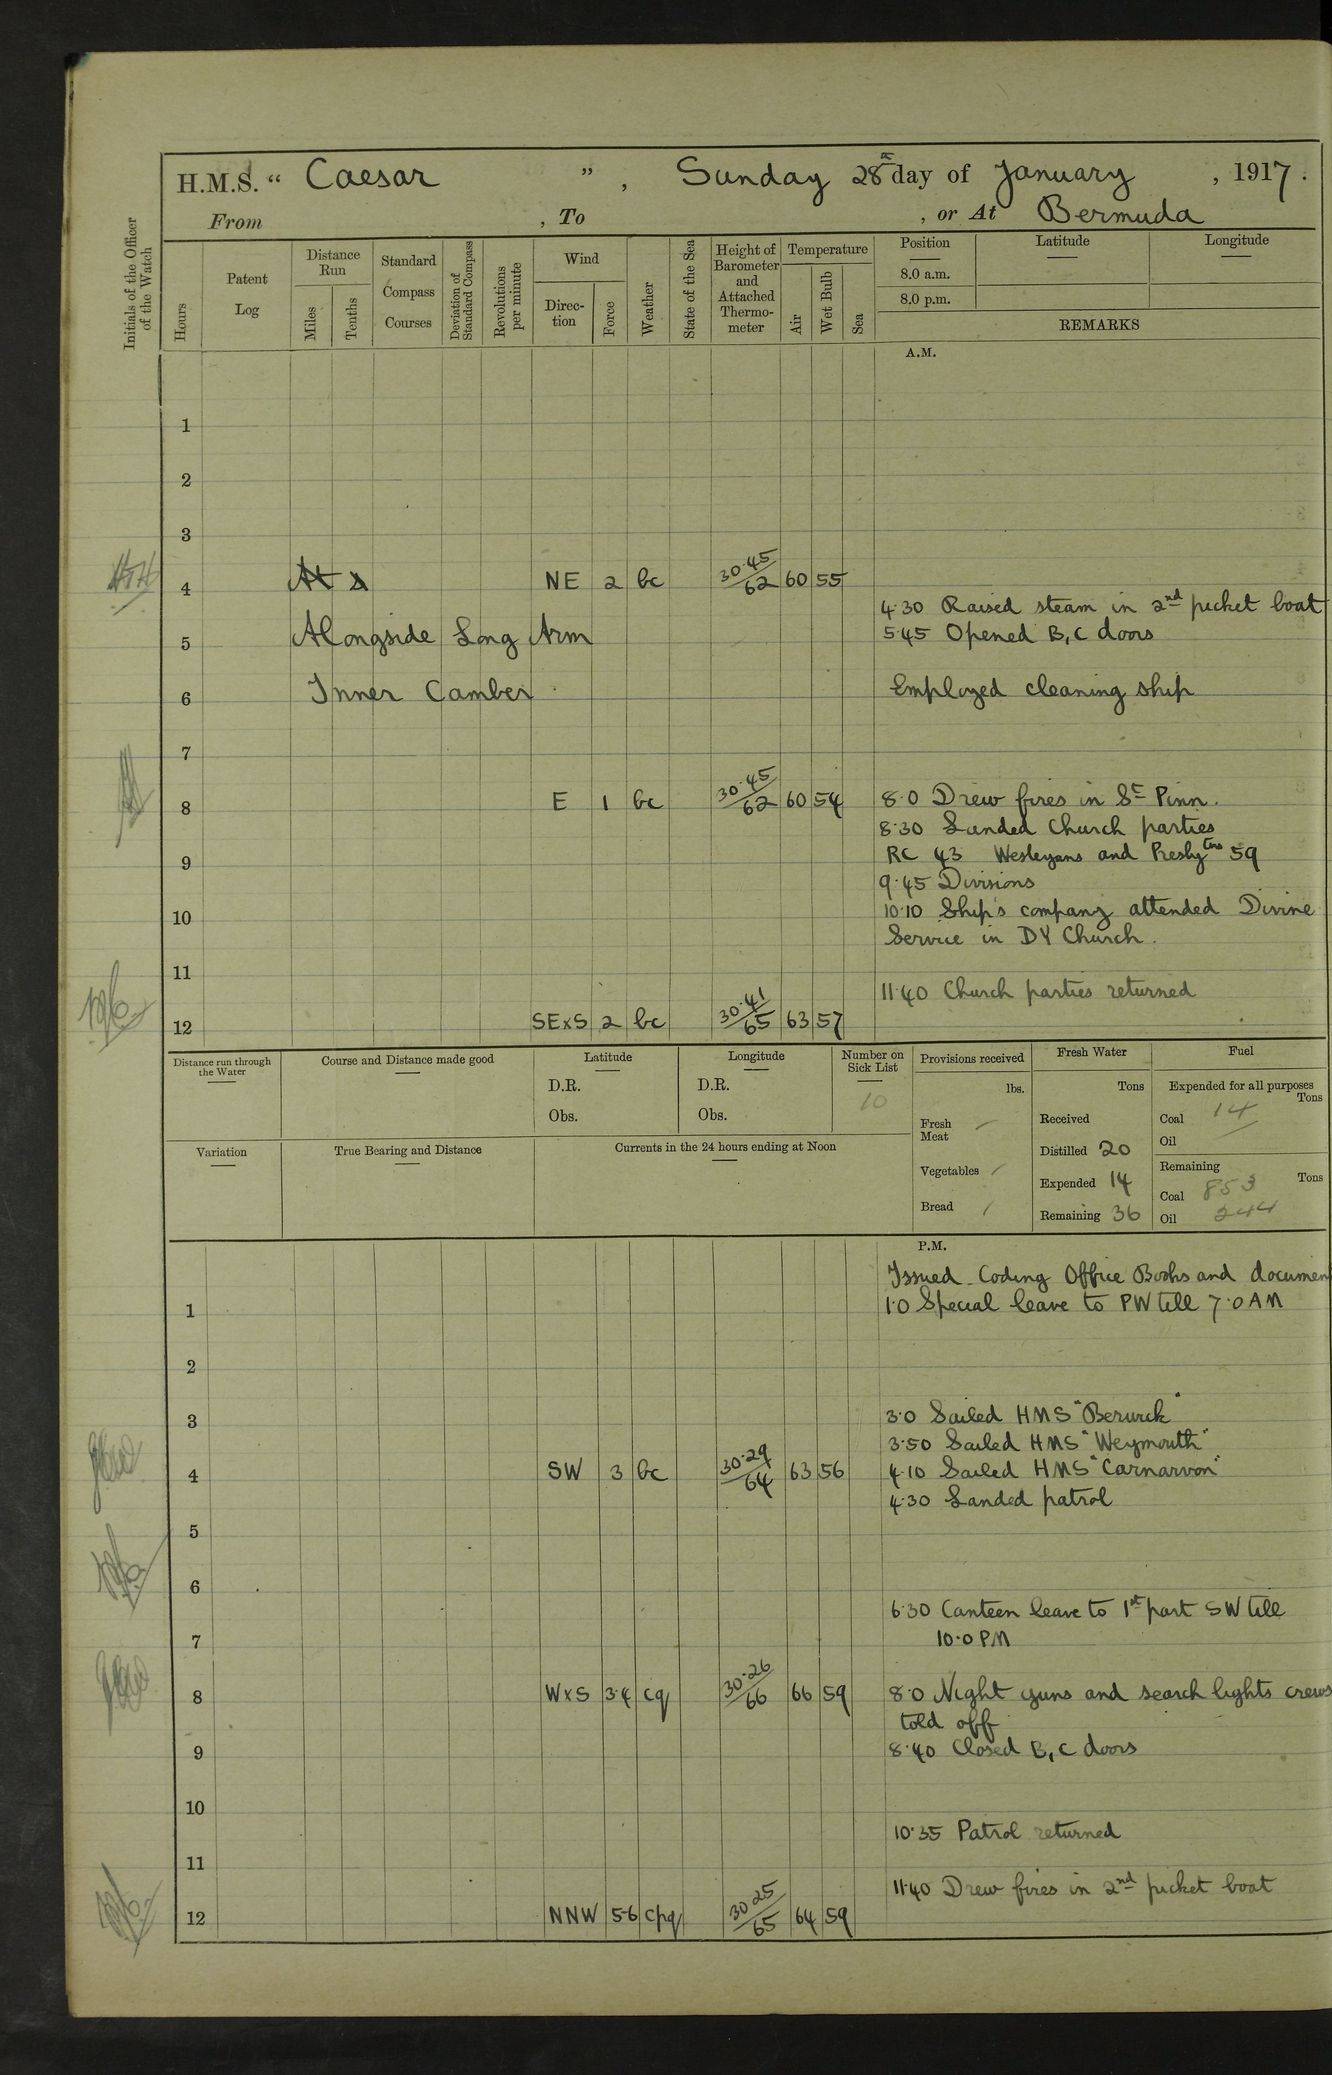 H.M.S. “ Caesar ” , Sunday 28th day of January , 1917.
From , To , or At Bermuda
Initials of the Officer of the Watch
Hours
Patent Log
Distance Run
Miles
Tenths
Standard Compass Courses
Deviation of Standard Compass
Revolutions per minute
Wind
Direction
Force
Weather
State of the Sea
Height of Barometer and Attached Thermometer
Temperature
Air
Wet Bulb
Sea
Position Latitude Longitude
8.0 a.m.
8.0 p.m.
REMARKS
A.M.
1
2
3
4 At s NE 2 bc 30.45/62 60 55
4.30 Raised steam in 2nd picket boat
5 Alongside Long Arm 5.45 Opened B, C doors
6 Inner Camber Employed cleaning ship
7
8 E 1 bc 30.45/62 60 54 8.0 Drew fires in St Pinn.
8.30 Landed Church parties
9 RC 43 Wesleyans and Presbytns 59
9.45 Divisions
10 10.10 Ship's company attended Divine
Service in DY Church.
11
11.40 Church parties returned
12 SExS 2 bc 30.41/65 63 57
Distance run through the Water
Course and Distance made good
Latitude
D.R.
Obs.
Longitude
D.R.
Obs.
Number on Sick List
10
Provisions received
lbs.
Fresh Meat
Vegetables
Bread
Fresh Water
Tons
Received
Distilled 20
Expended 14
Remaining 36
Fuel
Expended for all purposes
Tons
Coal 14
Oil
Remaining
Tons
Coal 853
Oil 244
Variation
True Bearing and Distance
Currents in the 24 hours ending at Noon
P.M.
Issued Coding Office Books and documen
1 1.0 Special leave to PW till 7.0 AM
2
3 3.0 Sailed HMS "Berwick"
3.50 Sailed HMS "Weymouth"
4 SW 3 bc 30.29/64 63 56 4.10 Sailed HMS "Carnarvon"
4.30 Landed patrol
5
6
6.30 Canteen leave to 1st part SW till
7 10.0 PM
8 WxS 3.4 cq 30.26/66 66 59 8.0 Night guns and search lights crews
told off
9 8.40 Closed B, C doors
10
10.35 Patrol returned
11
11.40 Drew fires in 2nd picket boat
12 NNW 5-6 cpq 30.25/65 64 59